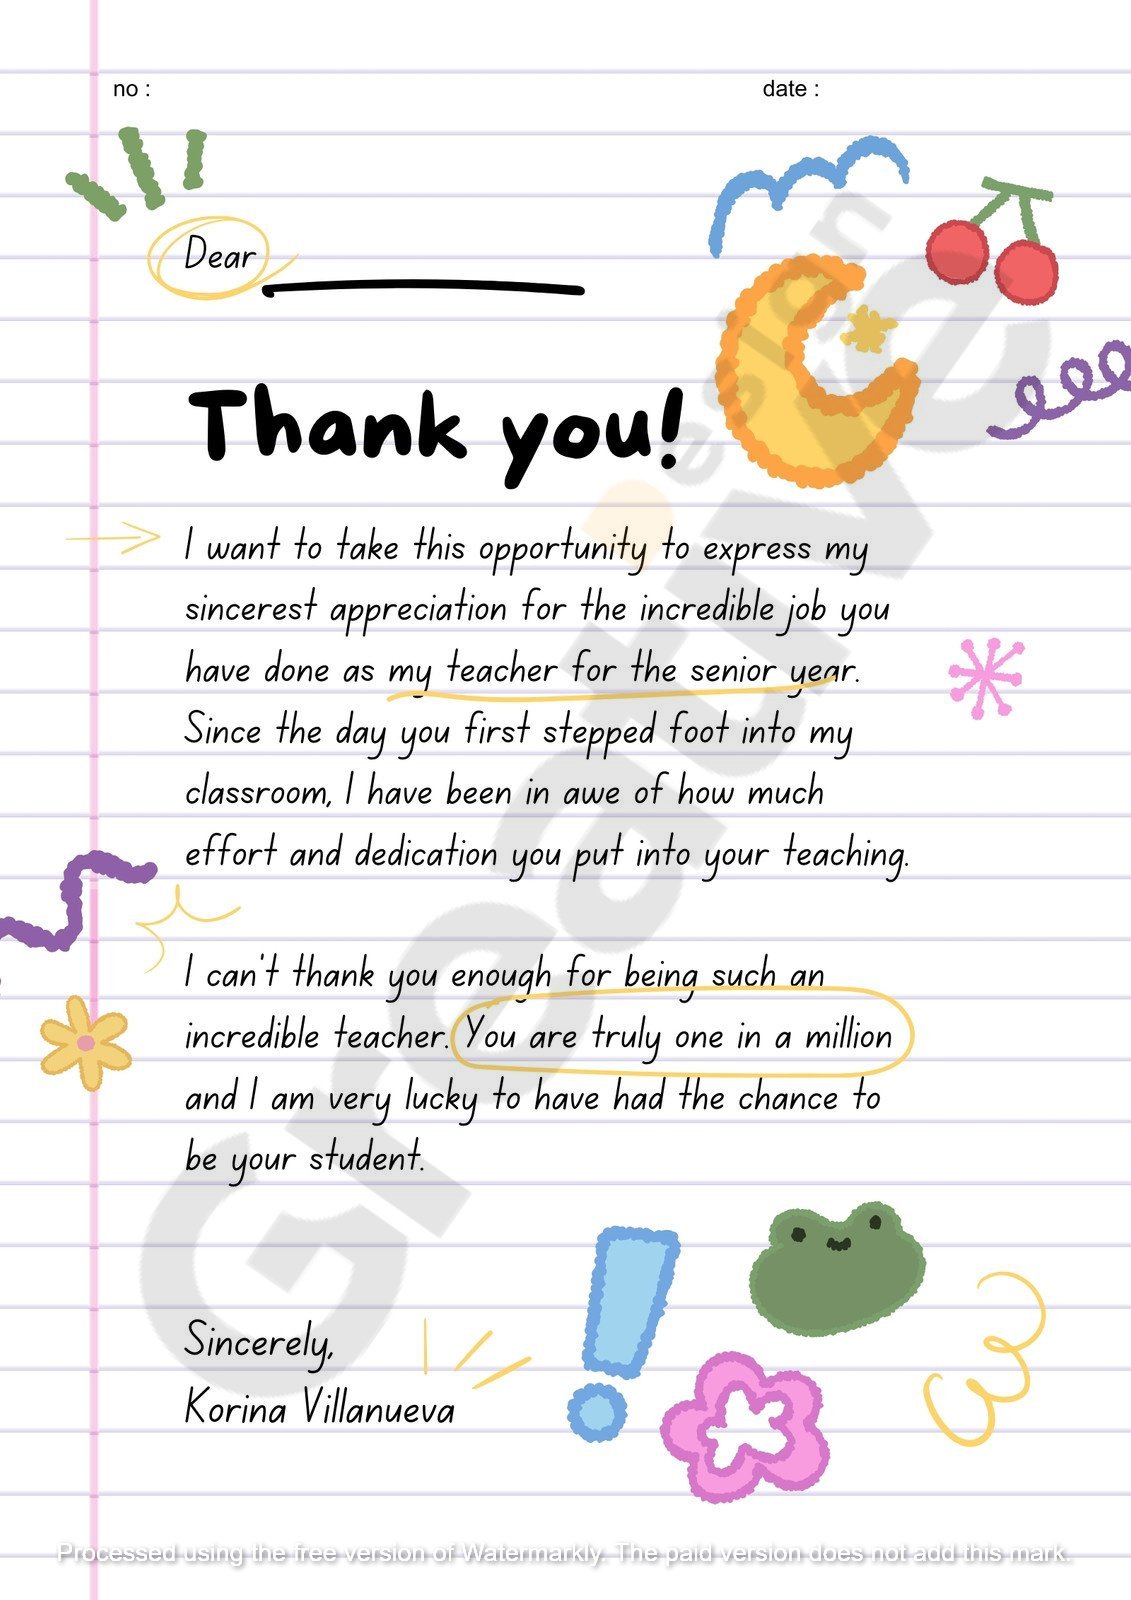 no :
date :
Dear
Thank you!
I want to take this opportunity to express my
sincerest appreciation for the incredible job you
have done as my teacher for the senior year.
Since the day you first stepped foot into my
classroom, I have been in awe of how much
effort and dedication you put into your teaching.
I can't thank you enough for being such an
incredible teacher. You are truly one in a million
and I am very lucky to have had the chance to
be your student.
Sincerely,
Korina Villanueva
Greative
Processed using the free version of Watermarkly. The paid version does not add this mark.